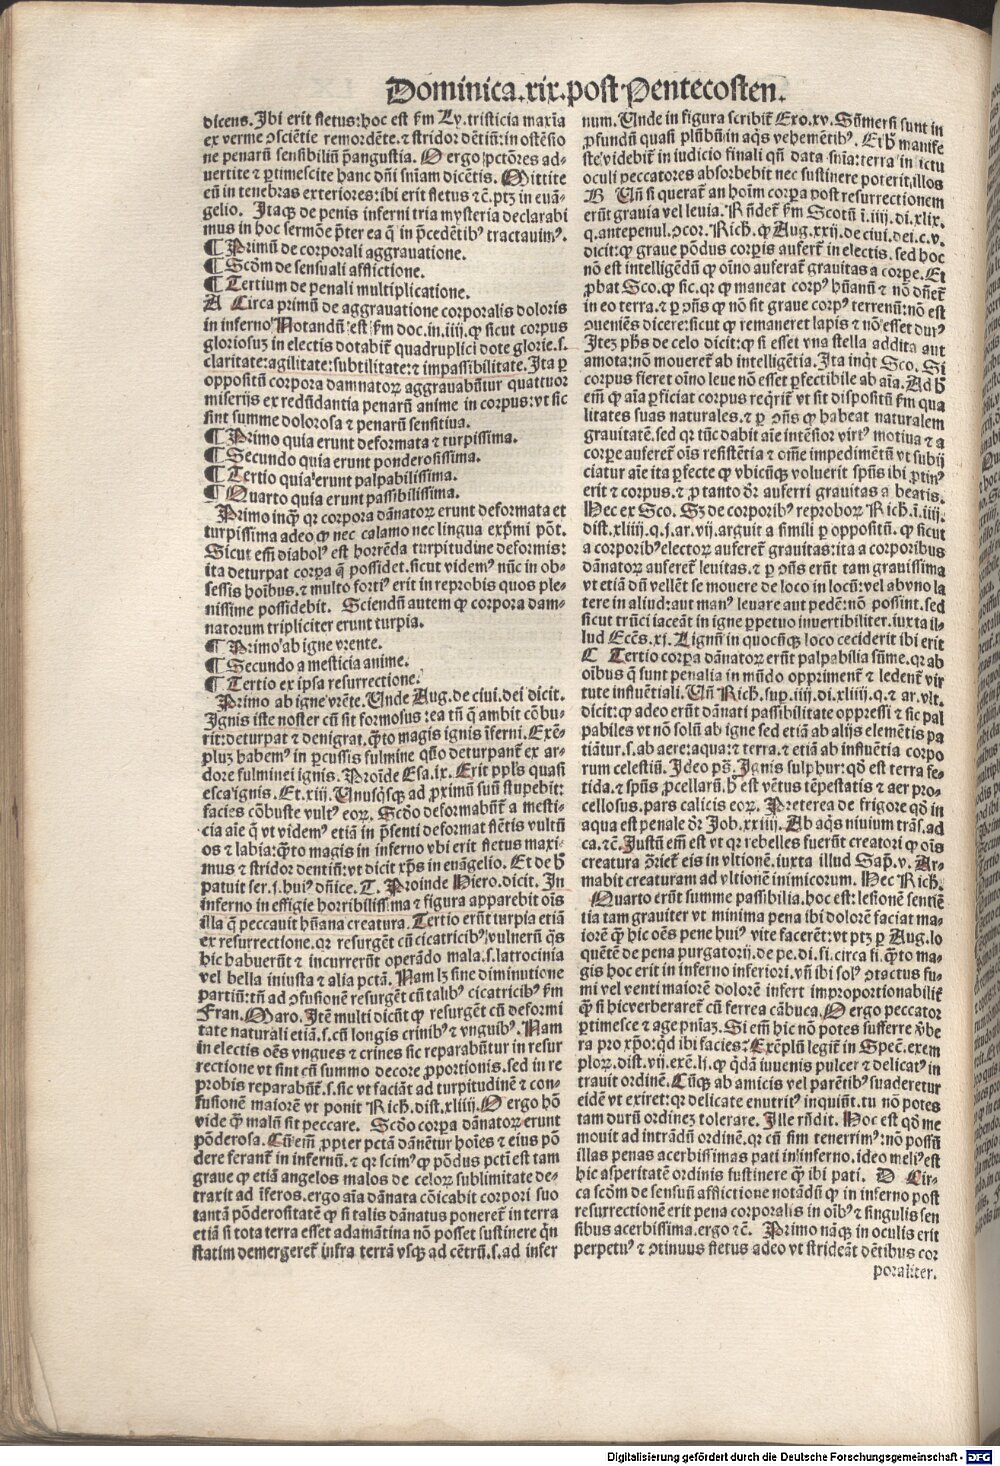 Dominica.xix.post Pentecosten.
dicens. Ibi erit fletus: hoc est fm Ly. tristicia maxīa
ex verme ꝯsciētie remordēte. ⁊ stridor dētiū: in ostēsio
ne penarū sensibiliū p̄angustia. O ergo pctōres ad-
vertite ⁊ ꝑtimescite hanc dn̄i sn̄iam dicētis. Mittite
eū in tenebras exteriores: ibi erit fletus ⁊ c̄. ptꝫ in euā-
gelio. Itaqꝫ de penis inferni tria mysteria declarabi
mus in hoc sermōe p̄ter ea q̄ in p̄cedētibꝰ tractauimꝰ.
¶ Primū de corporali aggrauatione.
¶ Scōm de sensuali afflictione.
¶ Tertium de penali multiplicatione.
A Circa primū de aggrauatione corporalis doloris
in inferno Notandū est fm doc. in .iiij. ꝙ sicut corpus
gloriosuꝫ in electis dotabit᷑ quadruplici dote glorie. s.
claritate: agilitate: subtilitate: ⁊ impassibilitate. Ita ꝑ
oppositū corpora damnatoꝝ aggrauabūtur quattuor
miserijs ex redūdantia penarū anime in corpus: vt sic
sint summe dolorosa ⁊ penarū sensitiua.
¶ Primo quia erunt deformata ⁊ turpissima.
¶ Secundo quia erunt ponderosissima.
¶ Tertio quia erunt palpabilissima.
¶ Quarto quia erunt passibilissima.
Primo inqꝫ qꝛ corpora dānatoꝝ erunt deformata et
turpissima adeo ꝙ nec calamo nec lingua exp̄mi pōt.
Sicut em̄ diabolꝰ est horrēda turpitudine deformis:
ita deturpat corpꝛa q̄ possidet. sicut videmꝰ nūc in ob-
sessis hoībus. ⁊ multo fortiꝰ erit in reprobis quos ple-
nissime possidebit. Sciendū autem ꝙ corpora dam-
natorum tripliciter erunt turpia.
¶ Primo ab igne vrente.
¶ Secundo a mesticia anime.
¶ Tertio ex ipsa resurrectione.
Primo ab igne vrēte. Unde Aug. de ciui. dei dicit.
Ignis iste noster cū sit formosus: ea tn̄ q̄ ambit cōbu-
rit: deturpat ⁊ denigrat. q̄to magis ignis īferni. Exē-
pluꝫ habemꝰ in ꝑcussis fulmine qūo deturpant᷑ ex ar-
dore fulminei ignis. Proīde Esa. ix. Erit pplꝰs quasi
esca ignis. Et .xiij. Unusqsqꝫ ad ꝓximū suū stupebit:
facies cōbuste vultꝰ eoꝝ. Scōo deformabūt᷑ a mesti-
cia aīe q̄ vt videmꝰ etiā in p̄senti deformat flētis vultū
os ⁊ labia: q̄to magis in inferno vbi erit fletus maxi-
mus ⁊ stridor dentiū: vt dicit xp̄s in euāgelio. Et de h̄
patuit ser. j. huiꝰ dn̄ice. T. Proinde Hiero. dicit. In
inferno in effigie horribilissima ⁊ figura apparebit oīs
illa q̄ peccauit hūana creatura. Tertio erūt turpia etiā
ex resurrectione. qꝛ resurgēt cū cicatricibꝰ vulnerū qs
hic habuerūt ⁊ incurrerūt operādo mala. s. latrocinia
vel bella iniusta ⁊ alia pctā. Nam lꝫ sine diminutione
partiū: tn̄ ad ꝯfusionē resurgēt cū talibꝰ cicatricibꝰ fm
Fran. Maro. Itē multi dicūt ꝙ resurgēt cū deformi
tate naturali etiā. s. cū longis crinibꝰ ⁊ vnguibꝰ. Nam
in electis oēs vngues ⁊ crines sic reparabūtur in resur
rectione vt sint cū summo decore ꝓportionis. sed in re
probis reparabūt᷑. s. sic vt faciāt ad turpitudinē ⁊ con-
fusionē maiorē vt ponit Rich. dist. xliiij. O ergo hō
vide q̄ malū sit peccare. Scōo corpa dānatoꝝ erunt
pōderosa. Cū em̄ ꝓpter pctā dānētur hoīes ⁊ eius pō
dere ferant᷑ in infernū. ⁊ qꝛ scimꝰ ꝙ pōdus pctī est tam
graue ꝙ etiā angelos malos de celoꝝ sublimitate de-
traxit ad īferos. ergo aīa dānata cōicabit corpori suo
tantā pōderositatē ꝙ si talis dānatus poneret᷑ in terra
etiā si tota terra esset adamātina nō posset sustinere qn̄
statim demergeret᷑ infra terrā vsqꝫ ad cētrū. s. ad infer
num. Unde in figura scribit᷑ Exo. xv. Sūmersi sunt in
ꝓfundū quasi plūbū in aqs vehemētibꝰ. Et h̄ manife
ste videbit᷑ in iudicio finali qn̄ data sn̄ia: terra in ictu
oculi peccatores absorbebit nec sustinere poterit illos
B Un̄ si querat᷑ an hoīm corpꝛa post resurrectionem
erūt grauia vel leuia. Rn̄det᷑ fm Scotū ī. iiij. di. xlix.
q. antepenul. ꝯcor. Rich. ꝙ Aug. xxij. de ciui. dei. c. v.
dicit: ꝙ graue pōdus corpis aufert᷑ in electis. sed hoc
nō est intelligēdū ꝙ oīno auferat᷑ grauitas a corpe. Et
ꝓbat Sco. ꝙ sic. qꝛ ꝙ maneat corpꝰ hūanū ⁊ nō dn̄et᷑
in eo terra. ⁊ ꝑ ꝯn̄s ꝙ nō sit graue corpꝰ terrenū: nō est
ꝯueniēs dicere: sicut ꝙ remaneret lapis ⁊ nō esset durꝰ
Iteꝫ ph̄s de celo dicit: ꝙ si esset vna stella addita aut
amota: nō moueret᷑ ab intelligētia. Ita inqt Sco. Si
corpus fieret oīno leue nō esset ꝑfectibile ab aīa. Ad h̄
em̄ ꝙ aīa ꝑficiat corpus reqrit᷑ vt sit dispositū fm qua
litates suas naturales. ⁊ ꝑ ꝯn̄s ꝙ habeat naturalem
grauitatē. sed qꝛ tūc dabit aīe intēsior virtꝰ motiua ⁊ a
corpe auferet᷑ oīs resistētia ⁊ oīne impedimētū vt subij
ciatur aīe ita ꝑfecte ꝙ vbicūqꝫ voluerit spūs ibi ꝓtinꝰ
erit ⁊ corpus. ⁊ ꝓ tanto dr̄ auferri grauitas a beatis.
Hec ex Sco. Sꝫ de corporibꝰ reproboꝝ Rich. ī. iiij.
dist. xliiij. q. j. ar. vij. arguit a simili ꝑ oppositū. ꝙ sicut
a corporibꝰ electoꝝ auferet᷑ grauitas: ita a corporibus
dānatoꝝ auferet᷑ leuitas. ⁊ ꝑ ꝯn̄s erūt tam grauissima
vt etiā dū vellēt se mouere de loco in locū: vel ab vno la
tere in aliud: aut manꝰ leuare aut pedē: nō possint. sed
sicut trūci iaceāt in igne ꝑpetuo inuertibiliter. iuxta il-
lud Eccēs. xi. Lignū in quocūqꝫ loco ceciderit ibi erit
C Tertio corpꝛa dānatoꝝ erūt palpabilia sūme. qꝛ ab
oībus q̄ sunt penalia in mūdo oppriment᷑ ⁊ ledent᷑ vir
tute influētiali. Un̄ Rich. suꝑ. iiij. di. xliiij. q. ⁊ ar. vlt.
dicit: ꝙ adeo erūt dānati passibilitate oppressi ⁊ sic pal
pabiles vt nō solū ab igne sed etiā ab alijs elemētis pa
tiātur. s. ab aere: aqua: ⁊ terra. ⁊ etiā ab influētia corpo
rum celestiū. Ideo ps̄. Ignis sulphur: qd̄ est terra fe-
tida. ⁊ spūs ꝓcellarū. h̄ est vētus tēpestatis ⁊ aer pro-
cellosus. pars calicis eoꝝ. Preterea de frigore qd̄ in
aqua est penale dr̄ Job. xxiiij. Ab aqs niuium trās. ad
ca. ⁊c̄. Justū em̄ est vt qꝛ rebelles fuerūt creatori ꝙ oīs
creatura ꝯriet᷑ eis in vltionē. iuxta illud Sap̄. v. Ar-
mabit creaturam ad vltionē inimicorum. Hec Rich.
Quarto erūt summe passibilia. hoc est: lesionē sentiē
tia tam grauiter vt minima pena ibi dolorē faciat ma-
iorē q̄ hic oēs pene huiꝰ vite facerēt: vt ptꝫ ꝑ Aug. lo
quētē de pena purgatorij. de pe. di. fi. circa fi. q̄to ma-
gis hoc erit in inferno inferiori. vn̄ ibi solꝰ ꝯtactus fu-
mi vel venti maiorē dolorē infert improportionabilit᷑
q̄ si hic verberaret᷑ cū ferrea cābuca. O ergo peccator
ꝑtimesce ⁊ age pn̄iaꝫ. Si em̄ hic nō potes sufferre vʼbe
ra pro xp̄o: qd ibi facies: Exēplū legit᷑ in Spec. exem
ploꝝ. dist. vij. exē. lj. ꝙ qdā iuuenis pulcer ⁊ delicatꝰ in
trauit ordinē. Cūqꝫ ab amicis vel parētibꝰ suaderetur
eidē vt exiret: qꝛ delicate enutritꝰ inquiūt. tu nō potes
tam durū ordineꝫ tolerare. Ille rn̄dit. Hoc est qd̄ me
mouit ad intrādū ordinē. qꝛ cū sim tenerrimꝰ: nō possū
illas penas acerbissimas pati in inferno. ideo meliꝰ est
hic asperitatē ordinis sustinere q̄ ibi pati. D Cir-
ca scōm de sensuū afflictione notādū ꝙ in inferno post
resurrectionē erit pena corporalis in oībꝰ ⁊ singulis sen
sibus acerbissima. ergo ⁊c̄. Primo nāqꝫ in oculis erit
perpetuꝰ ⁊ ꝯtinuus fletus adeo vt strideāt dētibus cor
poraliter.
Digitalisierung gefördert durch die Deutsche Forschungsgemeinschaft - DFG